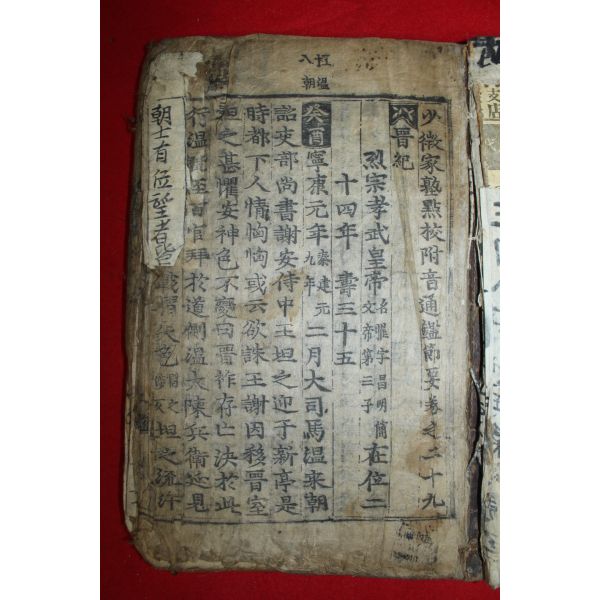 少微家塾點校附音通鑑節要卷之二十九
晉紀
烈宗孝武皇帝 名曜字昌明簡文帝第三子 在位二
十四年 壽三十五
癸酉 寧康元年 秦建元九年 二月大司馬溫來朝
詔吏部尚書謝安侍中王坦之迎于新亭是
時都下人情恟恟或云欲誅王謝因移晉室
坦之甚懼安神色不變曰晉祚存亡決於此
行溫旣至百官拜於道側溫大陳兵衛延見
朝士有位望者皆戰慴失色 坦之流汗
桓溫
入朝